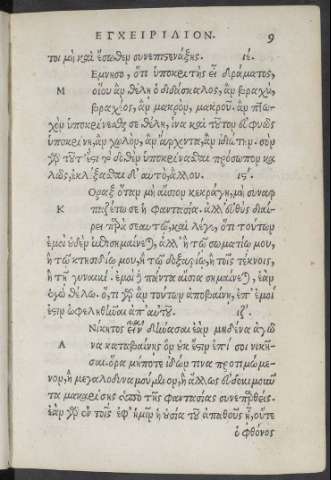 ΕΓΧΕΙΡΙΔΙΟΝ. 9
τοι μὴ καὶ ἔσωθεν συνεπιστενάξῃς. ιέ.
Μέμνησο, ὅτι ὑποκριτὴς εἶ δράματος,
Μ οἵου ἂν θέλῃ ὁ διδάσκαλος, ἂν βραχὺ,
βραχέος, ἂν μακρὸν, μακροῦ. ἂν πτω-
χὸν ὑποκρίνεσθαι σε θέλῃ, ἵνα καὶ τοῦτον εὐφυῶς
ὑποκρίνῃ, ἂν χωλὸν, ἂν ἄρχοντα, ἂν ἰδιώτην. σὸν
γὰρ τοῦτ' ἔστι τὸ δοθὲν ὑποκρίνασθαι πρόσωπον κα
λῶς, ἐκλέξασθαι δ' αὐτὸ, ἄλλου. ις.
Οραξ ὅταν μὴ αἴσιον κεκράγῃ, μὴ συναρ
Κ παζέτω σε ἡ φαντασία. ἀλλ' εὐθὺς διαί-
ρει παρὰ σεαυτῷ, καὶ λέγε, ὅτι τούτων
ἐμοὶ οὐδὲν ἐπισημαίνεται, ἀλλ' ἢ τῷ σωματίῳ μου,
ἢ τῷ κτησιδίῳ μου, ἢ τῷ δοξαρίῳ, ἢ τοῖς τέκνοις,
ἢ τῇ γυναικί. ἐμοὶ δὲ πάντα αἴσια σημαίνεται, ἐὰν
ἐγὼ θέλω. ὅ, τι γὰρ ἂν τούτων ἀποβαίνῃ, ἐπ' ἐμοί
ἐστιν ὠφεληθῆναι ἀπ' αὐτοῦ. ιζ.
Νίκητος εἶναι δύνασαι ἐὰν μηδένα ἀγῶ
Α να καταβαίνῃς ὃν οὐκ ἔστιν ἐπί σοι νικῆ-
σαι. ὅρα μήποτε ἰδών τινα προτιμώμε-
νον, ἢ μεγαλοδυνάμουμενον, ἢ ἄλλως εὐδοκιμοῦν
τα μακαρίσῃς ὑπὸ τῆς φαντασίας συναρπασθείς.
ἐὰν γὰρ ἐν τοῖς ἐφ' ἡμῖν ἡ οὐσία τοῦ ἀγαθοῦ ᾖ, οὔτε
ὁ φθόνος